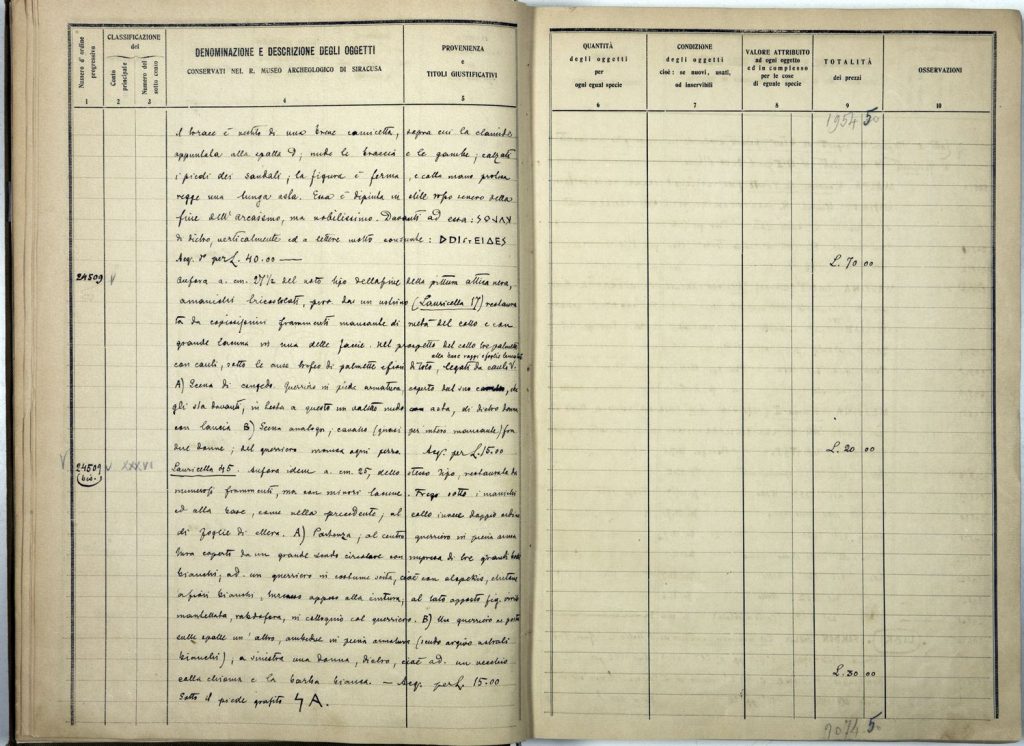 Numero d'ordine progressivo
CLASSIFICAZIONE del
Conto principale
Numero del sotto conto
DENOMINAZIONE E DESCRIZIONE DEGLI OGGETTI
CONSERVATI NEL R. MUSEO ARCHEOLOGICO DI SIRACUSA
PROVENIENZA
e
TITOLI GIUSTIFICATIVI
1 2 3 4 5
il torace è vestito di una breve camicetta, sopra cui la clamide
appuntata alla spalla D; nude le braccia e le gambe; calzati
i piedi dei sandali; la figura è ferma, e colla mano protesa
regge una lunga asta. Essa è dipinta in stile rosso severo della
fine dell'arcaismo, ma nobilissimo. Davanti ad essa:
di dietro, verticalmente ed a lettere molto
Acq. per L. 40.00 —
24509 V
Anfora a. cm. 27½ del noto tipo della fine della pittura attica nera,
a manichi tricostolati, prov. da un ustrino (Lauricella 17) restaura
ta da copiosissimi frammenti mancante di metà del collo e con
grande lacuna in una delle facce. Nel prospetto del collo tre palmette
alla base raggi e foglie
con cauli, sotto le anse trofeo di palmette e fiori di loto, legati da cauli V.
A) Scena di congedo. Guerriero in piede armatura coperto dal suo che
gli sta davanti, in testa a questo un valletto nudo con asta, di dietro donna
con lancia B) Scena analoga; cavallo (quasi per intero mancante) fra
due donne; del guerriero manca ogni Acq. per L. 15.00
V 24509 (bis.) V XXXVI
Lauricella 45. Anfora idem a. cm. 25, dello stesso tipo, restaurata da
numerosi frammenti, ma con minori lacune. Fregi sotto i manichi
ed alla base, come nella precedente; al collo invece doppio ordine
di foglie di ellera. A) Partenza; al centro guerriero in piena arma
tura coperto da un grande scudo circolare con impresa di tre grandi
bianchi; ad un guerriero in costume scita, cioè con alopekis,
a fiori bianchi, appeso alla cintura; al lato opposto fig. virile
mantellata, rabdofora, in colloquio col guerriero. B) Un guerriero
sulle spalle un'altro, ambedue in piena armatura (scudo argivo
bianchi), a sinistra una donna, dietro, cioè ad. un vecchio
colla chioma e la barba bianca. — Acq. per L. 15.00
Sotto il piede graffito
QUANTITÀ
degli oggetti
per
ogni egual specie
CONDIZIONE
degli oggetti
cioè: se nuovi, usati,
od inservibili
VALORE ATTRIBUITO
ad ogni oggetto
ed in complesso
per le cose
di eguale specie
TOTALITÀ
dei prezzi
OSSERVAZIONI
6 7 8 9 10
1954 50
L. 70 00
L. 20 00
L. 30 00
2074 5